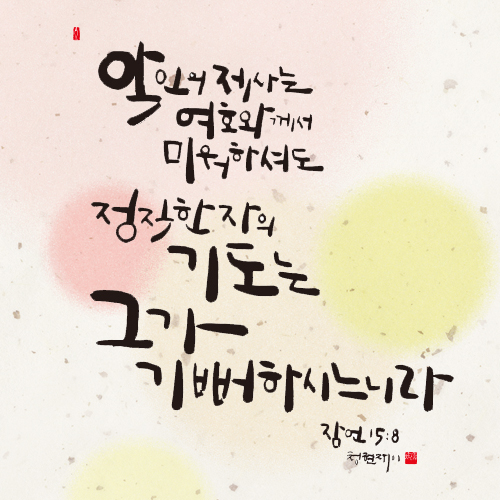 악인의 제사는
여호와께서
미워하셔도
정직한 자의
기도는
그가
기뻐하시느니라
잠언 15:8